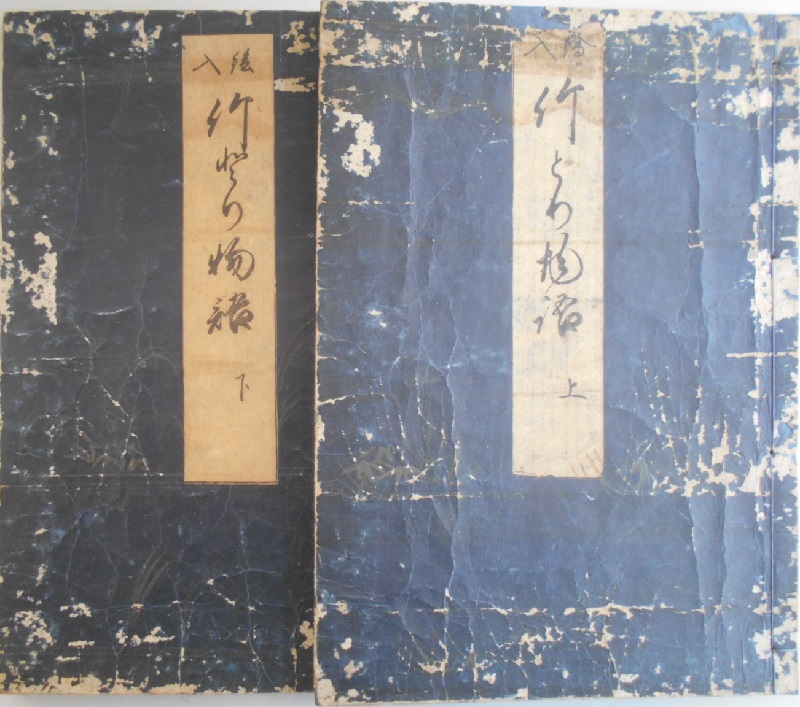 繪入
竹とり物語
上
絵入
竹とり物語
下